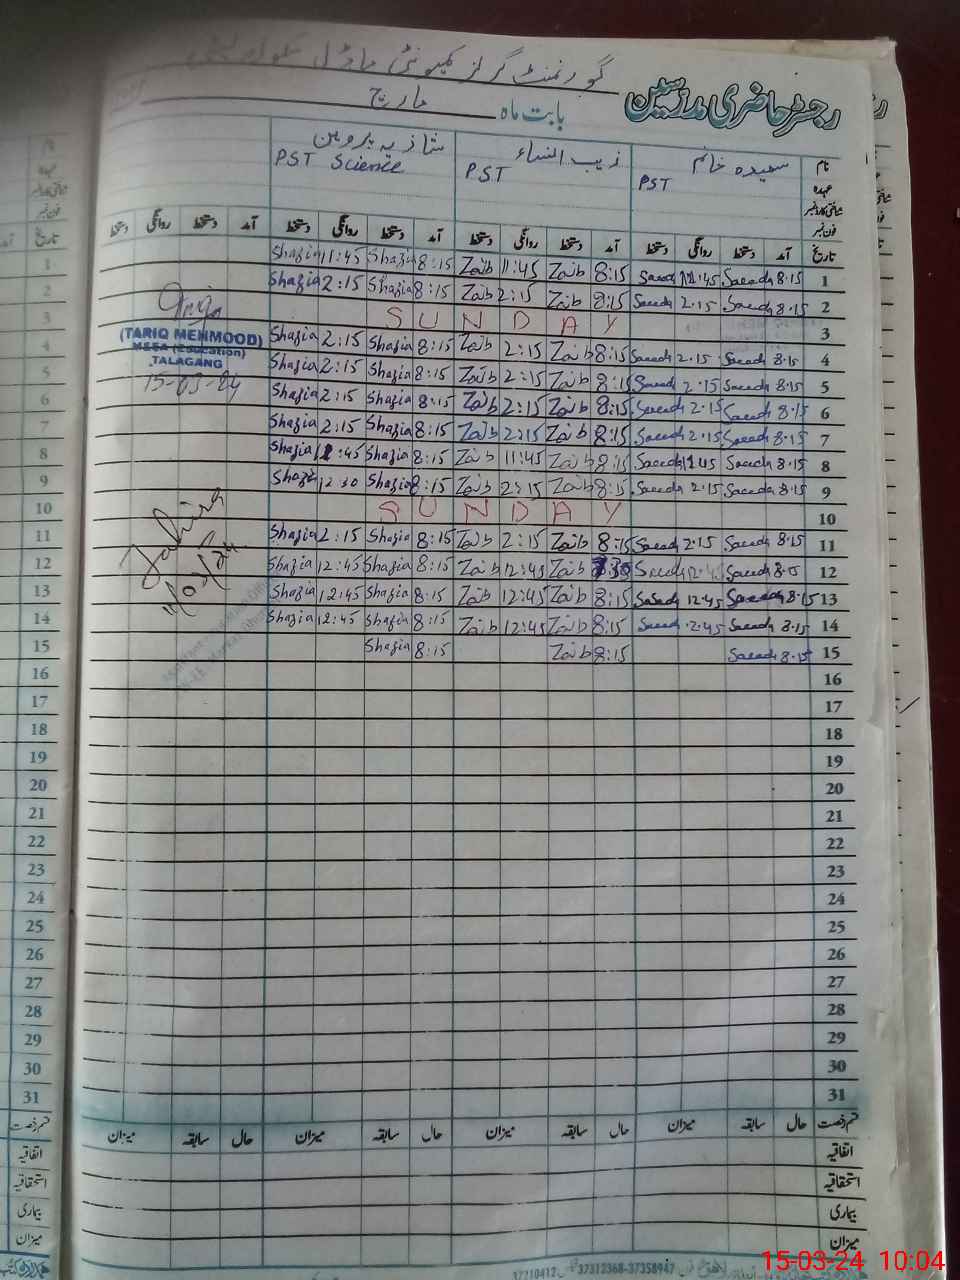 گورنمنٹ گرلز کمیونٹی ماڈل سکول
رجسٹر حاضری مدرسین
بابت ماہ مارچ
نام سعیدہ خانم زیب النساء شازیہ پروین
عہدہ PST PST PST Science
شناختی کارڈ نمبر
فون نمبر
تاریخ آمد دستخط روانگی دستخط آمد دستخط روانگی دستخط آمد دستخط روانگی دستخط آمد دستخط روانگی دستخط
Shazia 11:45 Shazia 8:15 Zaib 11:45 Zaib 8:15 Saeeda 11:45 Saeeda 8:15 1
Shazia 2:15 Shazia 8:15 Zaib 2:15 Zaib 8:15 Saeeda 2:15 Saeeda 8:15 2
SUNDAY 3
Shazia 2:15 Shazia 8:15 Zaib 2:15 Zaib 8:15 Saeeda 2:15 Saeeda 8:15 4
Shazia 2:15 Shazia 8:15 Zaib 2:15 Zaib 8:15 Saeeda 2:15 Saeeda 8:15 5
Shazia 2:15 Shazia 8:15 Zaib 2:15 Zaib 8:15 Saeeda 2:15 Saeeda 8:15 6
Shazia 2:15 Shazia 8:15 Zaib 2:15 Zaib 8:15 Saeeda 2:15 Saeeda 8:15 7
Shazia :45 Shazia 8:15 Zaib 11:45 Zaib 8:15 Saeeda Saeeda 8:15 8
Shazi 12:30 Shazia 8:15 Zaib 2:15 Zaib 8:15 Saeeda 2:15 Saeeda 8:15 9
SUNDAY 10
Shazia 2:15 Shazia 8:15 Zaib 2:15 Zaib 8:15 Saeeda 2:15 Saeeda 8:15 11
Shazia 12:45 Shazia 8:15 Zaib 12:45 Zaib Saeeda 12:45 Saeeda 8:15 12
Shazia 12:45 Shazia 8:15 Zaib 12:45 Zaib 8:15 Saeeda 12:45 Saeeda 8:15 13
Shazia 12:45 Shazia 8:15 Zaib 12:45 Zaib 8:15 Saeeda 12:45 Saeeda 8:15 14
Shazia 8:15 Zaib 8:15 Saeeda 8:15 15
16
17
18
19
20
21
22
23
24
25
26
27
28
29
30
31
(TARIQ MEHMOOD)
(Education)
TALAGANG
15-03-24
قسم رخصت حال سابقہ میزان حال سابقہ میزان حال سابقہ میزان حال سابقہ میزان
اتفاقیہ
استحقاقیہ
بیماری
میزان
37312368-37358947
37210412
15-03-24 10:04